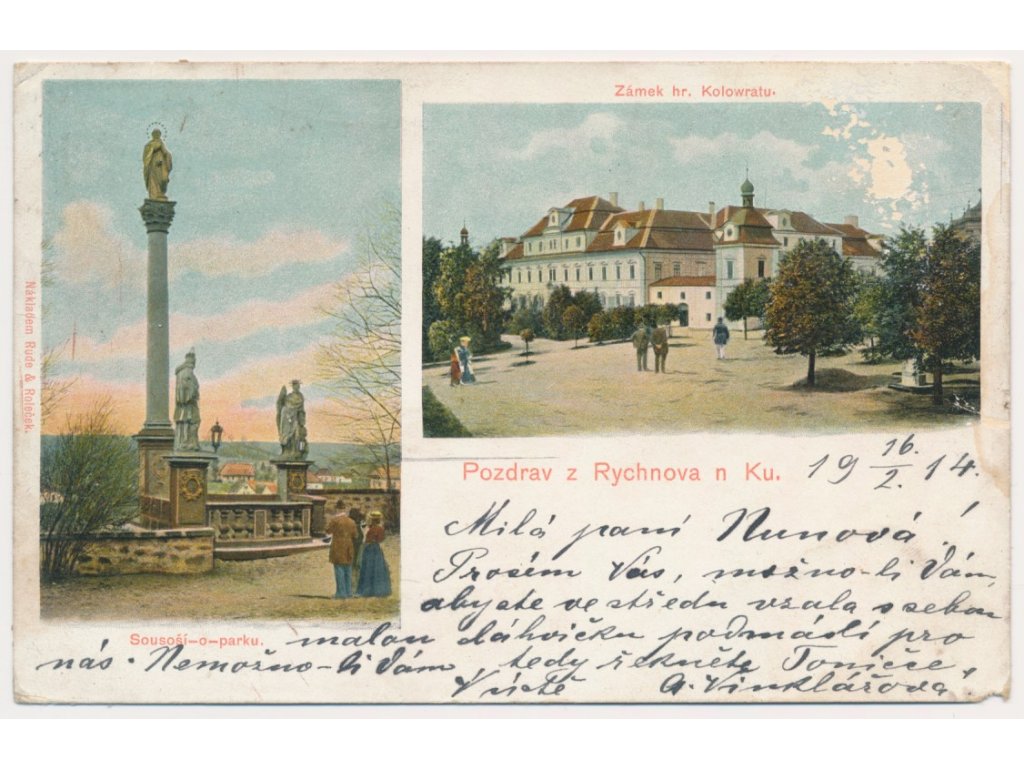 Zámek hr. Kolowratu.
Nákladem Rüde & Roleček.
Pozdrav z Rychnova n Ku.
19 16./2. 14.
Milá paní Nunová!
Prosím Vás, možno-li Vám,
abyste ve středu vzala s sebou
Sousoší-o-parku.
malou láhvičku podmáslí pro
nás. Nemožno-li Vám, tedy řekněte Toničce,
V úctě A. Vinklářova